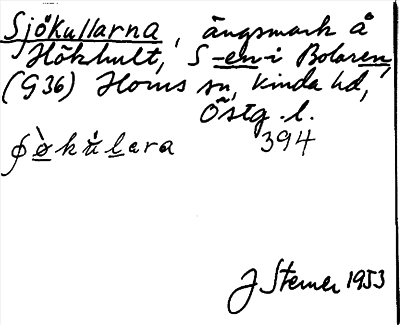 Sjökullarna, ängsmark å
Hökhult, S-en-i Bolaren,
(G36) Horns sn, Kinda hd,
Östg. l.
394
J Sterner 1953